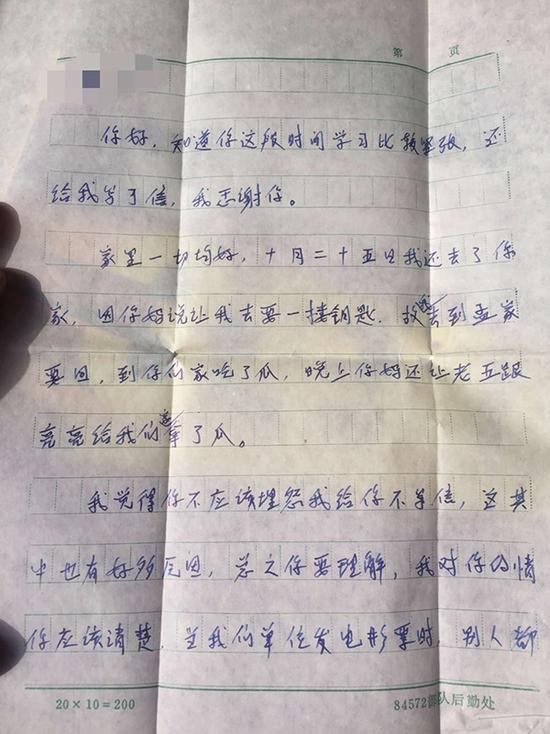 第 页
你好，知道你这段时间学习比较紧张，还
给我写了信，我忐谢你。
家里一切均好，十月二十五日我还去了你
家，因你妈说让我去要一接钥匙，故我去到孟家
要回，到你们家吃了瓜，晚上你妈还让老五跟
亮亮给我们送拿了瓜。
我觉得你不应该埋怨我给你不写信，这其
中也有好多原因，总之你要理解，我对你的情
你应该清楚，当我们单位发电影票时，别人都
20×10=200
84572部队后勤处